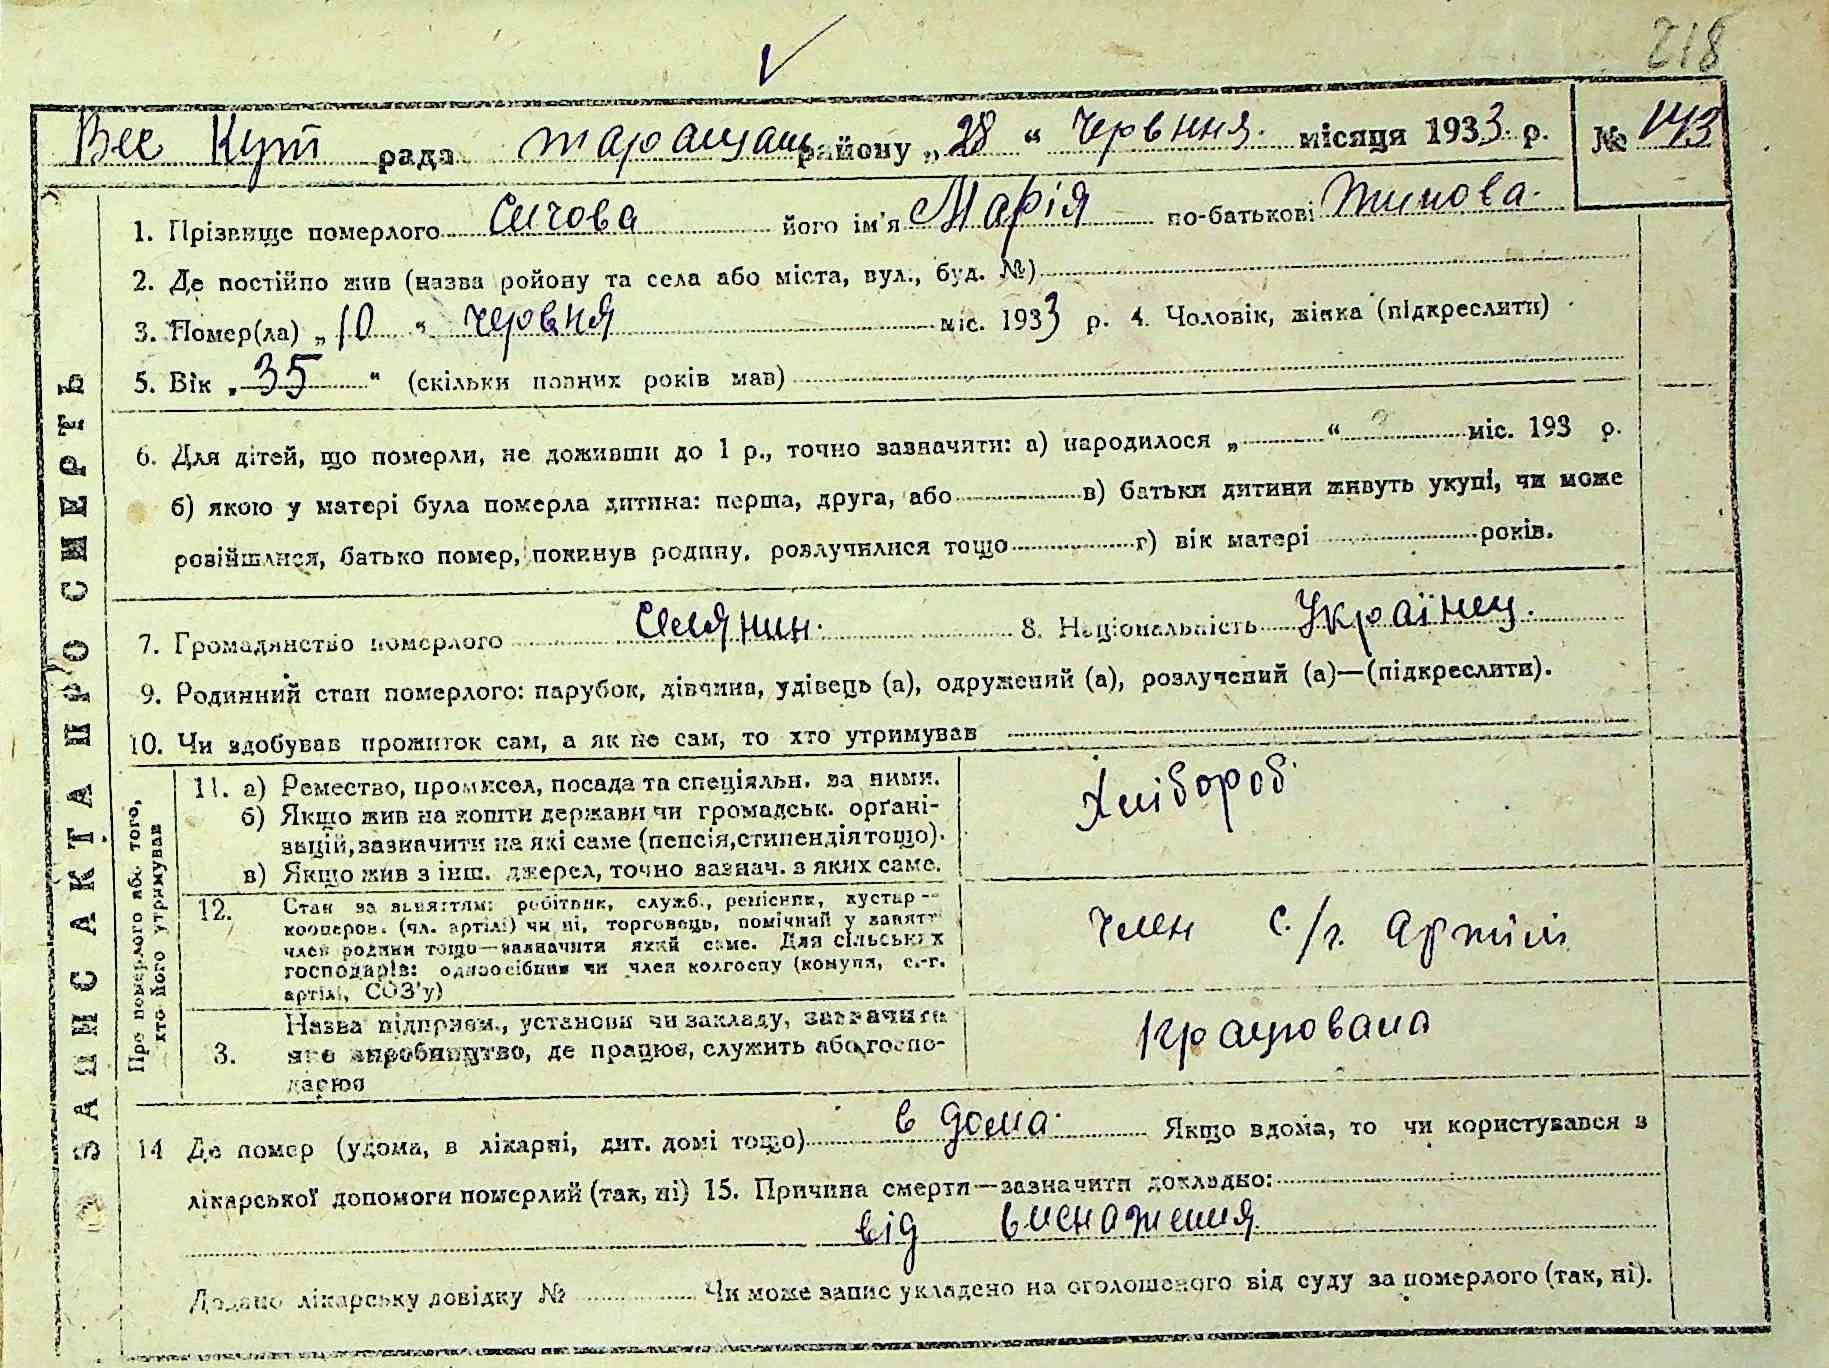 218
Вес Кут рада таращан району „28 “ Червня. місяця 1933. р. № 143
1. Прізвище померлого Сичова його ім'я Марія по-батькові Тимова.
2. Де постійно жив (назва ройону та села або міста, вул., буд. №)
3. Помер(ла) „ 10 “ червня міс. 1933 р. 4. Чоловік, жінка (підкреслити)
5. Вік „ 35 “ (скільки повних років мав)
6. Для дітей, що померли, не доживши до 1 р., точно зазначити: а) народилося „ “ міс. 193 р.
б) якою у матері була померла дитина: перша, друга, або в) батьки дитини живуть укупі, чи може
розійшлися, батько помер, покинув родину, розлучилися тощо г) вік матері років.
7. Громадянство померлого Селянин. 8. Національність Українец.
9. Родинний стан померлого: парубок, дівчина, удівець (а), одружений (а), розлучений (а)—(підкреслити).
10. Чи здобував прожиток сам, а як не сам, то хто утримував
ЗАПИС АКТА ПРО СМЕРТЬ
Про померлого або того, хто його утримував
11. а) Ремество, промисел, посада та спеціяльн. за ними.
б) Якщо жив на кошти держави чи громадськ. орґані-
зацій, зазначити на які саме (пенсія, стипендія тощо).
в) Якщо жив з інш. джерел, точно зазнач. з яких саме.
Хлібороб
12. Стан за заняттям: робітник, служб., ремісник, кустар—
кооперов. (чл. артілі) чи ні, торговець, помічний у занятт
член родини тощо—зазначити який саме. Для сільських
господарів: одноосібник чи член колгоспу (комуня, с.-г.
артілі, СОЗ'у)
Член с./г. артілі
3. Назва підприєм., установи чи закладу, зазначити
яке виробництво, де працює, служить або госпо-
дарює
працювала
14 Де помер (удома, в лікарні, дит. домі тощо) в дома. Якщо вдома, то чи користувався з
лікарської допомоги померлий (так, ні) 15. Причина смерти—зазначити докладно:
від виснаження
Додано лікарську довідку № Чи може запис укладено на оголошеного від суду за померлого (так, ні).